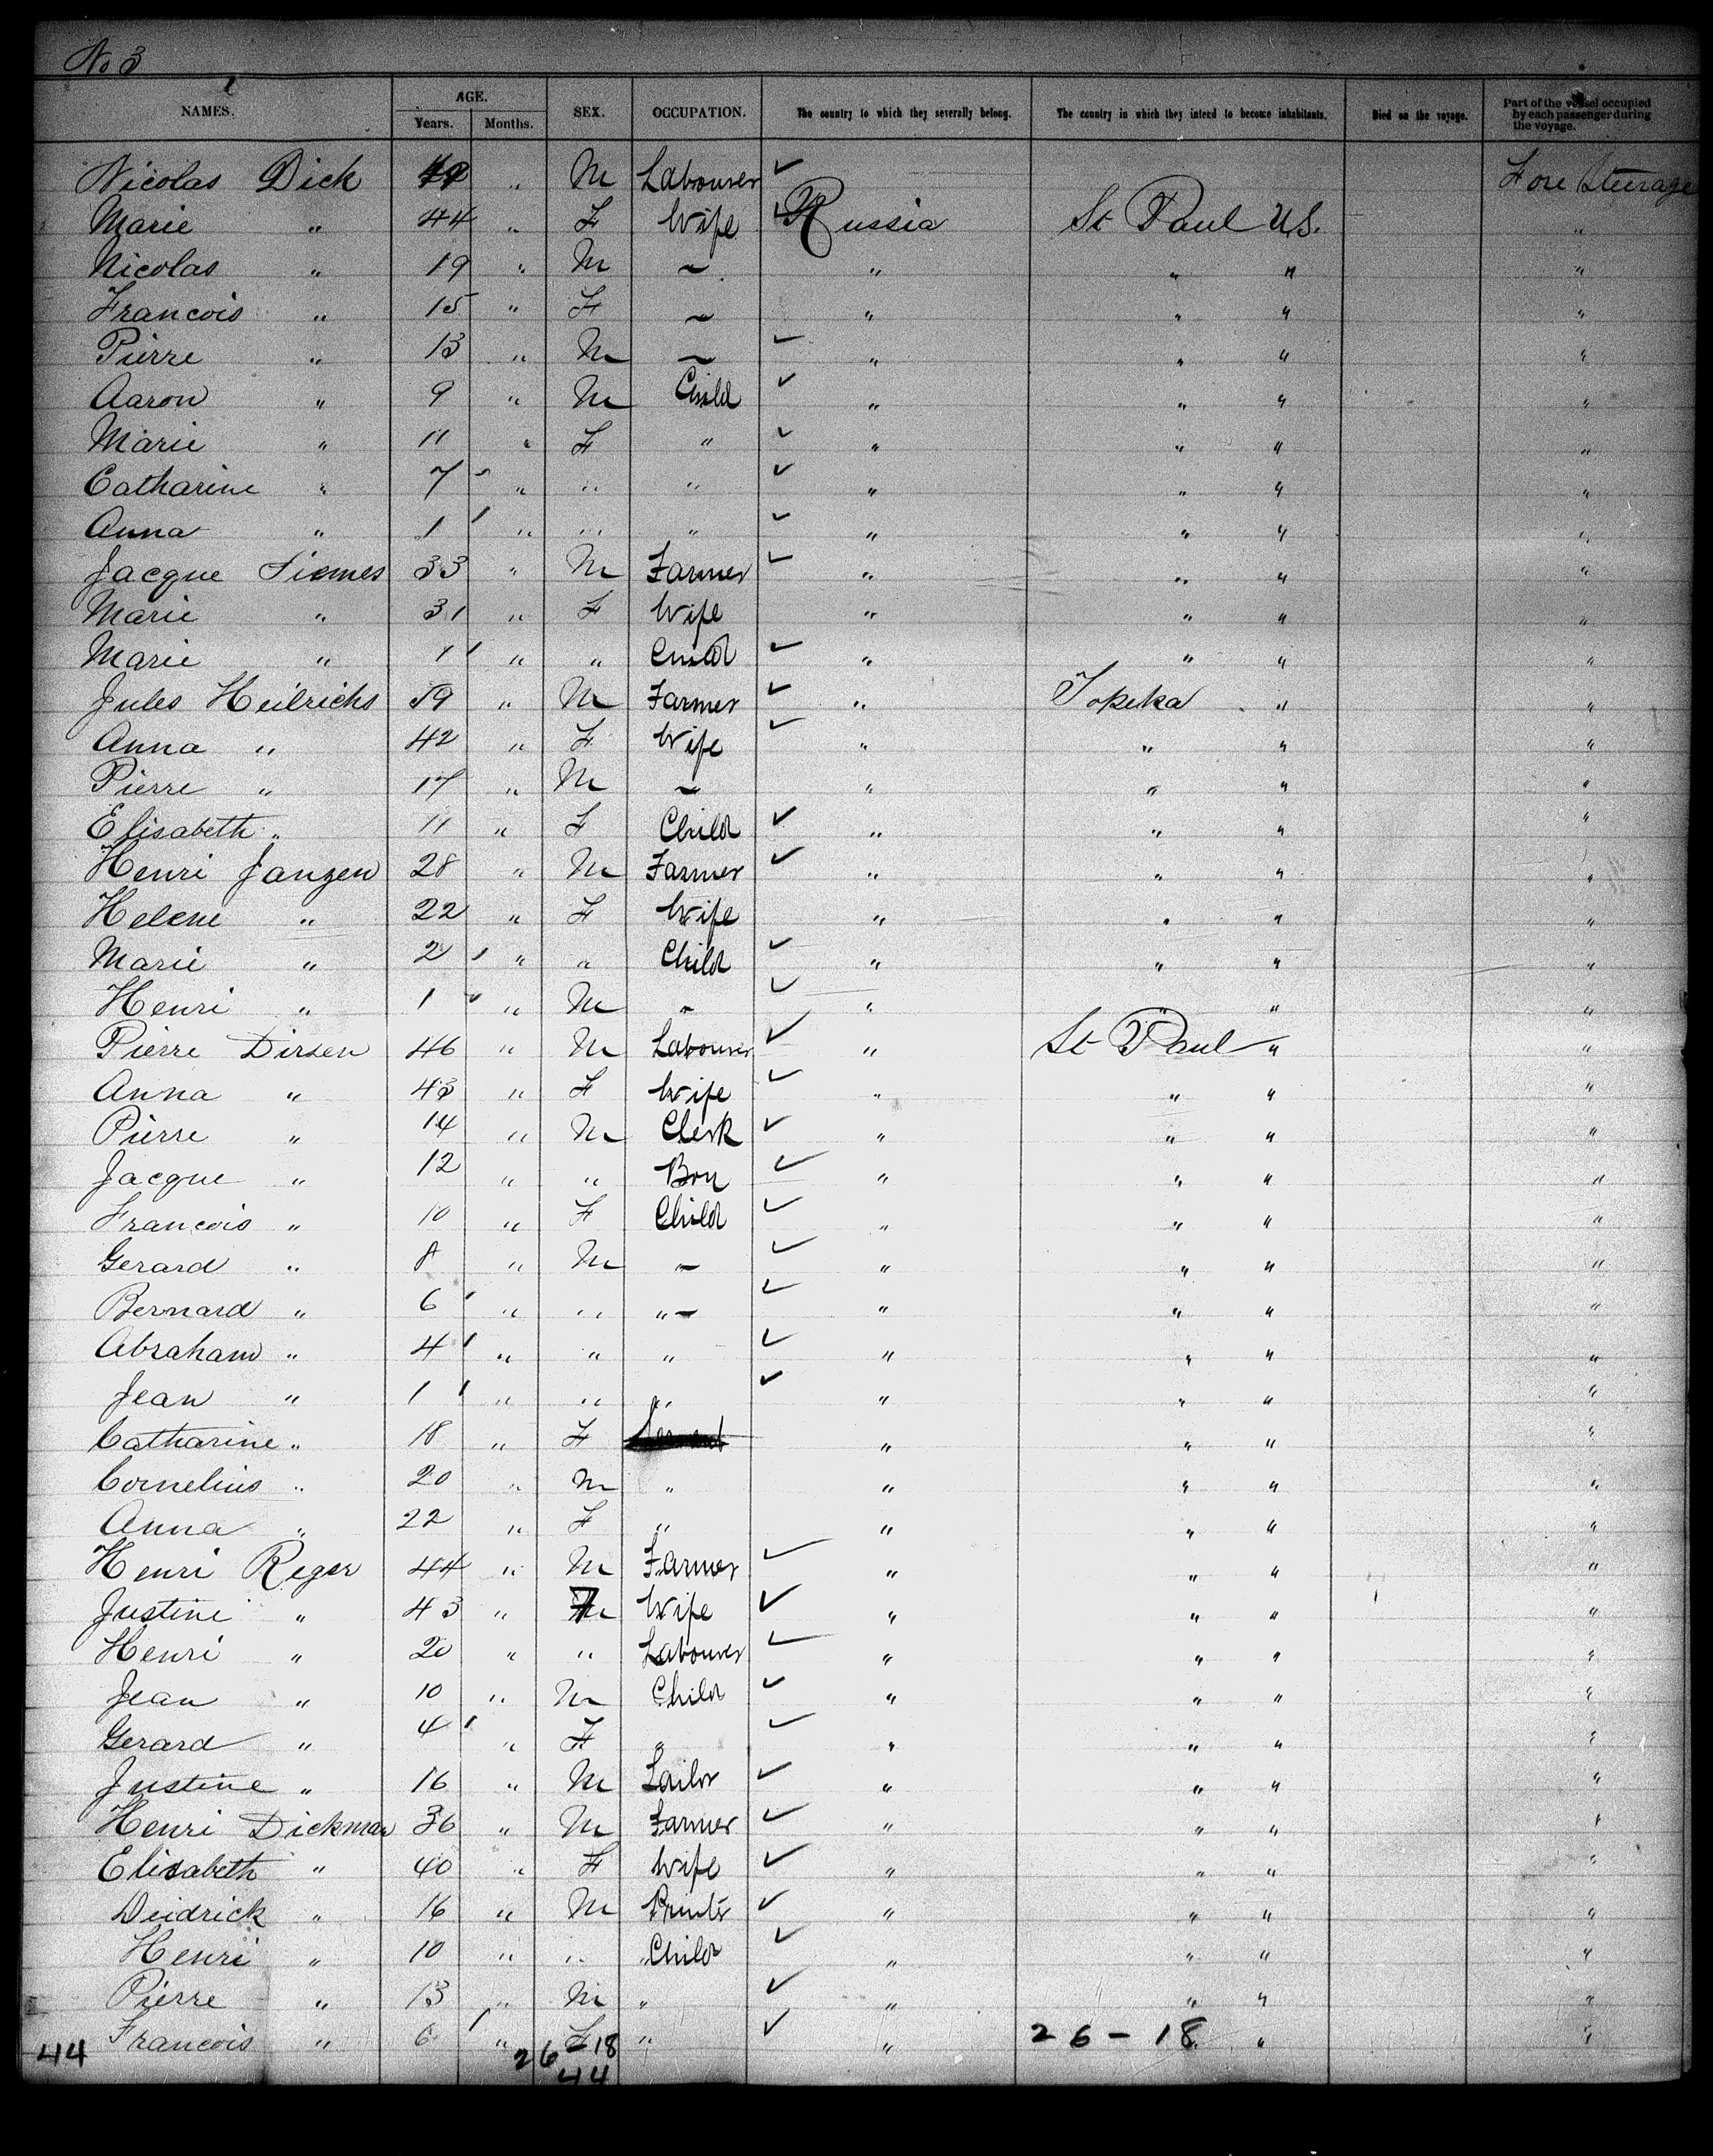 No 3
NAMES. AGE. Years. Months. SEX. OCCUPATION. The country to which they severally belong. The country in which they intend to become inhabitants. Died on the voyage. Part of the vessel occupied by each passenger during the voyage.
Nicolas Dick " M Labourer ✓ Fore Steerage
Marie " 44 " F Wife ✓ Russia St Paul U.S. "
Nicolas " 19 " M ~ " " " "
Francois " 15 " F ~ " " " "
Pierre " 13 " M ~ ✓ " " " "
Aaron " 9 " M Child ✓ " " " "
Marie " 11 " F " ✓ " " " "
Catharine " 7 " " " ✓ " " " "
Anna " 1 " " " ✓ " " " "
Jacque Siemes 33 " M Farmer ✓ " " " "
Marie " 31 " F Wife " " " "
Marie " 1 " " Child ✓ " " " "
Jules Heilrichs 59 " M Farmer ✓ " Topeka " "
Anna " 42 " F Wife ✓ " " " "
Pierre " 17 " M ~ " " " "
Elisabeth " 11 " F Child ✓ " " " "
Henri Janzen 28 " M Farmer ✓ " " " "
Helene " 22 " F Wife " " " "
Marie " 2 " " Child ✓ " " " "
Henri " 1 " M " ✓ " " " "
Pierre Dirsen 46 " M Labourer ✓ " St Paul " "
Anna " 43 " F Wife ✓ " " " "
Pierre " 14 " M Clerk ✓ " " " "
Jacque " 12 " " Boy ✓ " " " "
Francois " 10 " F Child ✓ " " " "
Gerard " 8 " M ~ ✓ " " " "
Bernard " 6 " " " ✓ " " " "
Abraham " 4 " " " ✓ " " " "
Jean " 1 " " " ✓ " " " "
Catharine " 18 " F " " " "
Cornelius " 20 " M " " " " "
Anna " 22 " F " " " " "
Henri Reger 44 " M Farmer ✓ " " " "
Justine " 43 " F Wife ✓ " " " "
Henri " 20 " " Labourer ✓ " " " "
Jean " 10 " M Child ✓ " " " "
Gerard " 4 " F " ✓ " " " "
Justine " 16 " M ✓ " " " "
Henri Dickman 36 " M Farmer ✓ " " " "
Elisabeth " 40 " F Wife ✓ " " " "
Deidrick " 16 " M Printer ✓ " " " "
Henri " 10 " " Child ✓ " " " "
Pierre " 13 " M " ✓ " " " "
Francois " 6 " F " ✓ " " " "
44 26 18 26 - 18
44